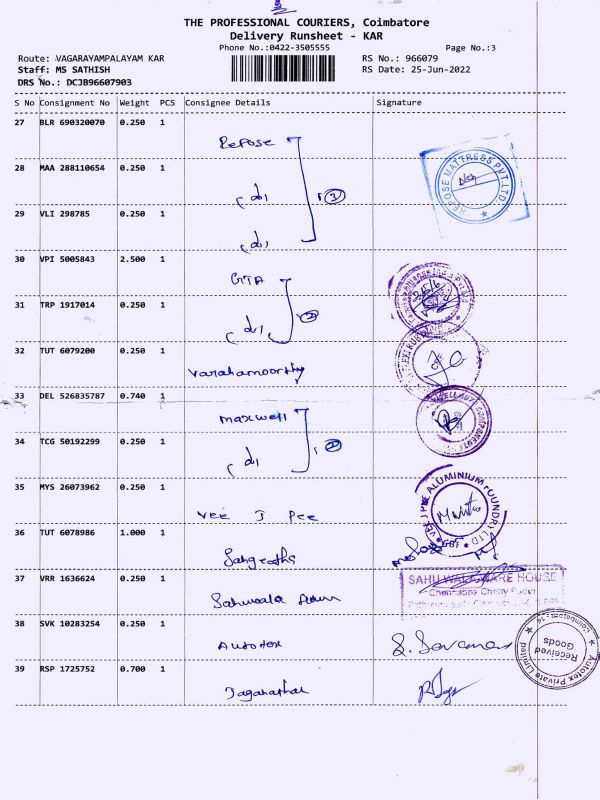 THE PROFESSIONAL COURIERS, Coimbatore
Delivery Runsheet - KAR
Phone No.:0422-3505555 Page No.:3
Route: VAGARAYAMPALAYAM KAR RS No.: 966079
Staff: MS SATHISH RS Date: 25-Jun-2022
DRS No.: DCJB96607903
S No Consignment No Weight PCS Consignee Details Signature
27 BLR 690320070 0.250 1 Repose
REPOSE MATTRESS PVT.LTD
28 MAA 288110654 0.250 1 (do)
3
29 VLI 298785 0.250 1 (do)
30 VPI 5005843 2.500 1 GTA
31 TRP 1917014 0.250 1 (do)
2
32 TUT 6079200 0.250 1 Varahamoorthy
33 DEL 526835787 0.740 1 maxwell
34 TCG 50192299 0.250 1 (do)
2
35 MYS 26073962 0.250 1 Vee J Pee
VEE J PEE ALUMINIUM FOUNDRY LTD
36 TUT 6078986 1.000 1 Sangeetha
37 VRR 1636624 0.250 1 Sahuwala
SAHUWALA WARE HOUSE
38 SVK 10283254 0.250 1 Autotex
S. Saravanan
Autotex Private Limited
Coimbatore-14
Received
Goods
39 RSP 1725752 0.700 1 Jaganathan